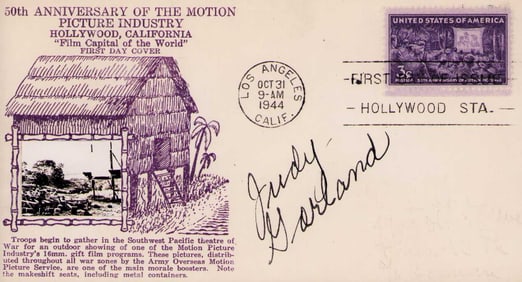 50th ANNIVERSARY OF THE MOTION
PICTURE INDUSTRY
HOLLYWOOD, CALIFORNIA
"Film Capital of the World"
FIRST DAY COVER
Troops begin to gather in the Southwest Pacific theatre of
War for an outdoor showing of one of the Motion Picture
Industry's 16mm. gift film programs. These pictures, distrib-
uted throughout all war zones by the Army Overseas Motion
Picture Service, are one of the main morale boosters. Note
the makeshift seats, including metal containers.
LOS ANGELES
OCT 31
9-AM
1944
CALIF.
UNITED STATES OF AMERICA
3¢
FIRST
HOLLYWOOD STA.
Judy
Garland